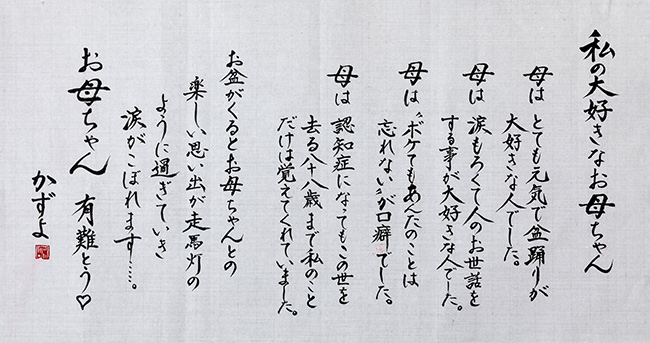 私の大好きなお母ちゃん
母は とても元気で盆踊りが
大好きな人でした。
母は 涙もろくて人のお世話を
する事が大好きな人でした。
母は 〝ボケてもあんたのことは
忘れない〟が口癖でした。
母は 認知症になってもこの世を
去る八十八歳まで私のこと
だけは覚えてくれていました。
お盆がくるとお母ちゃんとの
楽しい思い出が走馬灯の
ように過ぎていき
涙がこぼれます……。
お母ちゃん 有難とう♡
かずよ